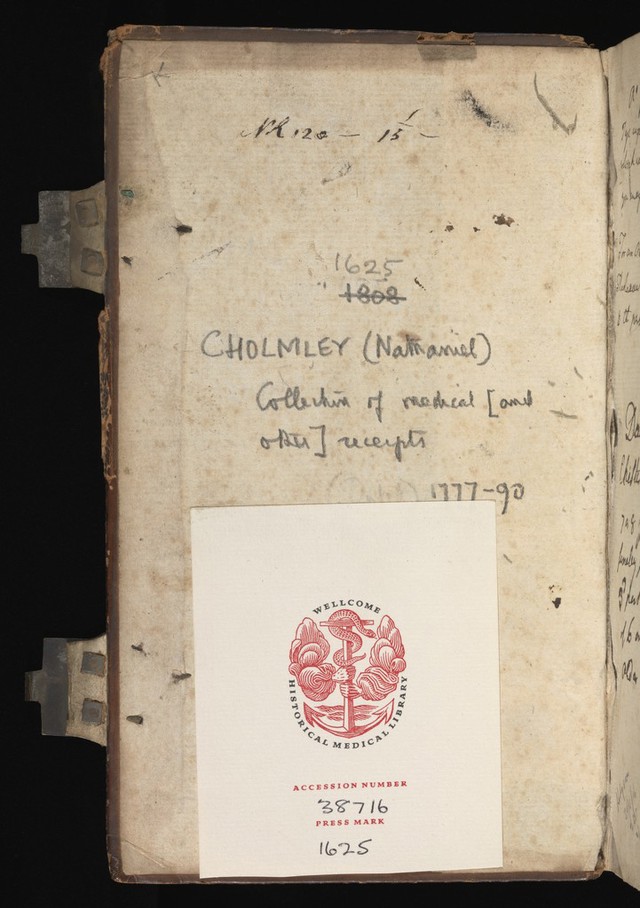 15
1625
1808
CHOLMLEY (Nathaniel)
Collection of medical [and
other] receipts
1777-90
WELLCOME
HISTORICAL MEDICAL LIBRARY
ACCESSION NUMBER
38716
PRESS MARK
1625